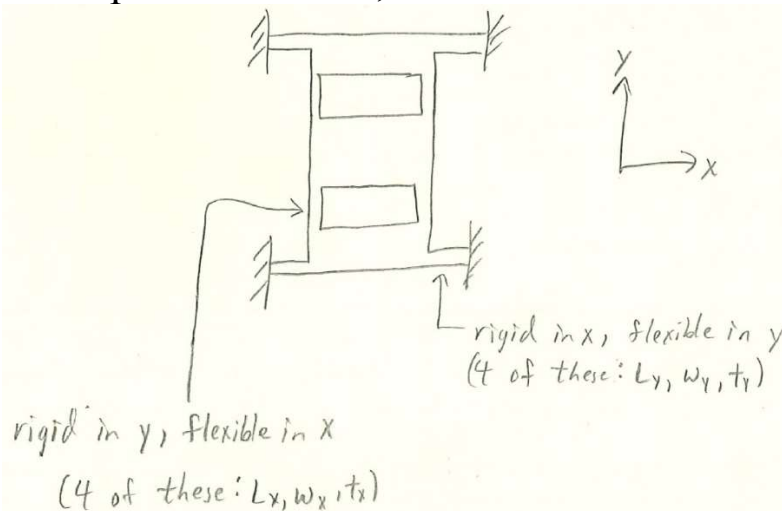 Y
X
rigid in x, flexible in y
(4 of these: Ly, wy, ty)
rigid in y, flexible in x
(4 of these: Lx, wx, tx)